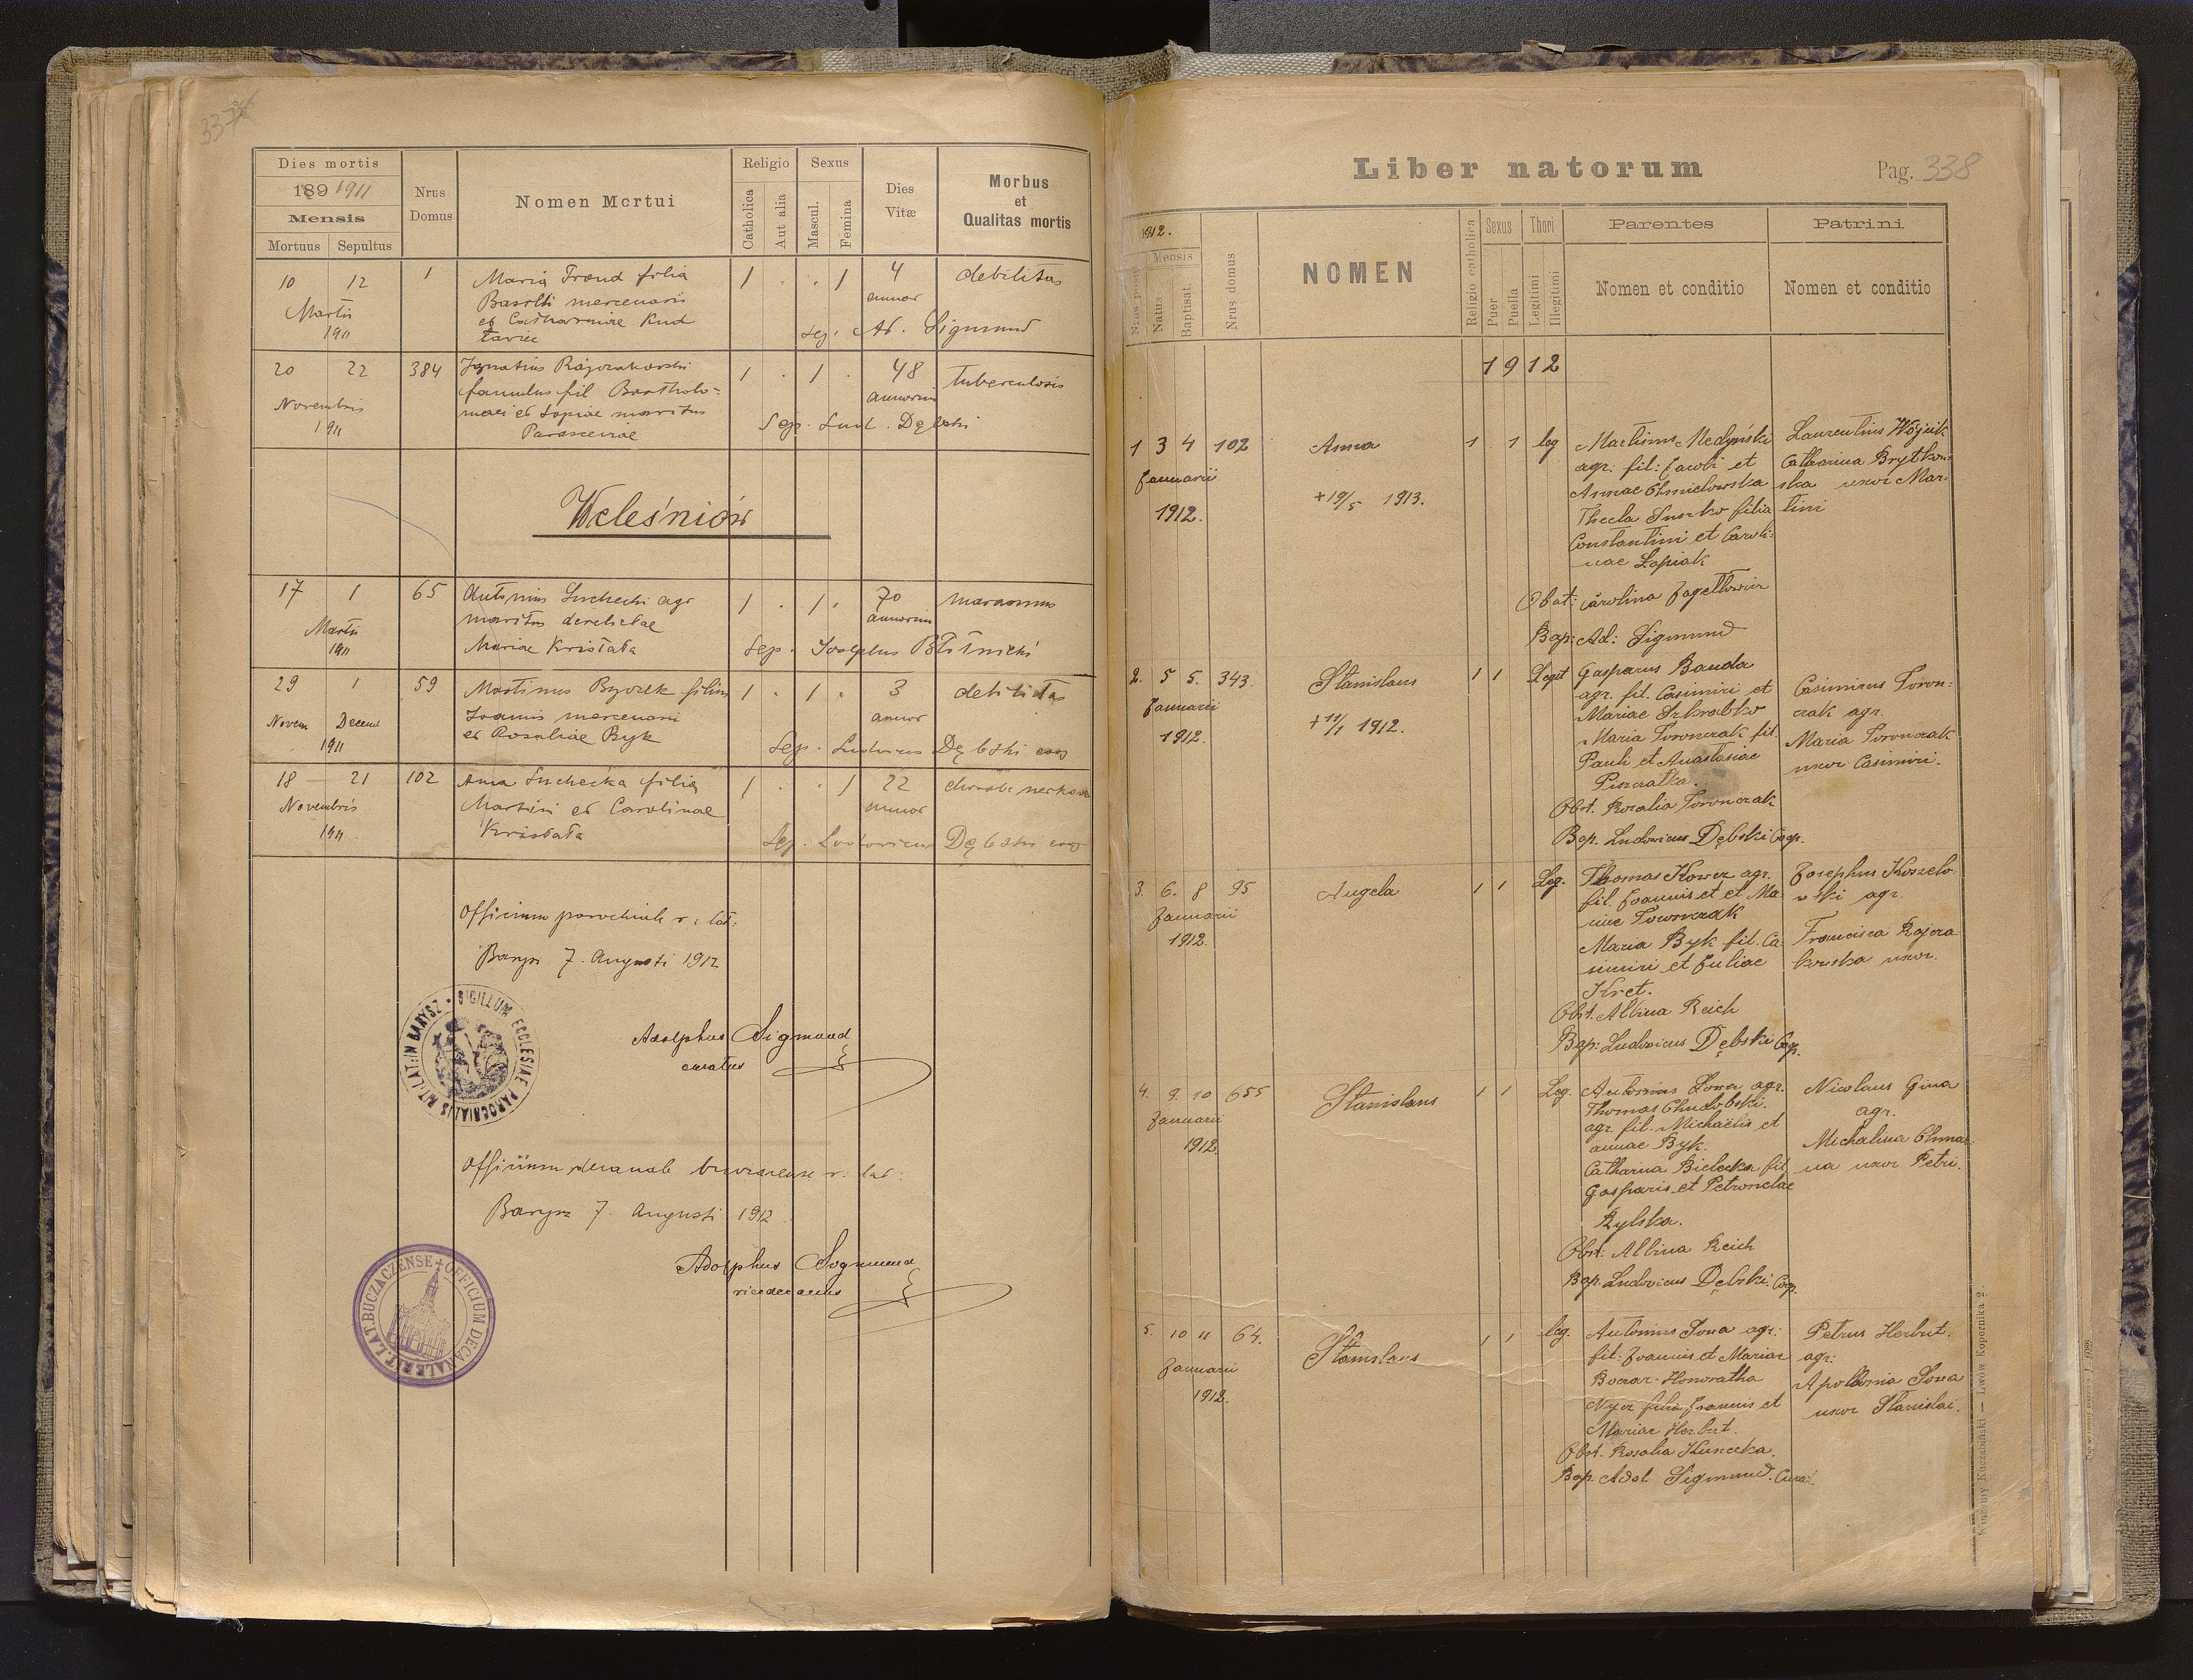 337
Dies mortis
189 1911
Mensis
Mortuus Sepultus
Nrus Domus
Nomen Mortui
Religio
Catholica
Aut alia
Sexus
Mascul.
Femina
Dies Vitæ
Morbus
et
Qualitas mortis
10 12 1 Maria Trend filia 1 . . 1 4 debilitas
Basilii mercenarii annor
Martii et Catharinae Kud
1911 Sep. Ad. Sigmund
20 22 384 Ignatius Rajczakowski 1 . 1 . 48 tuberculosis
famulus fil Bartholo= annorum
Novembris maei et Sopiae maritus
1911 Parasceviae Sep. Lud. Dębski
Weleśniów
17 1 65 Antonius Suchecki agr 1 . 1 . 70 marasmus
maritus derelictae annorum
Martii
1911 Mariae Kristata Sep. Josephus Błotnicki
29 1 59 Martinus Byczek filius 1 . 1 . 3 debilitas
Joannis mercenarii annor
Novem Decemb
1911 et Rosaliae Byk Sep. Ludovicus Dębski coop
18 21 102 Anna Suchecka filia 1 . . 1 22
Novembris Martini et Carolinae annor
1911 Kristata Sep. Lodovicus Dębski coop
Officium parochiale r. lat.
Barysz 7. Augusti 1912
SIGILLUM ECCLESIAE PAROCHIALIS RIT: LAT: IN BARYSZ
Adolphus Sigmund
curatus
Officium decanale buczacense r. lat.
Barysz 7. Augusti 1912
Adolphus Sigmund
vicedecanus
OFFICIUM DECANALE RIT. LAT. BUCZACZENSE
Liber natorum
Pag. 338
1912.
Nrus
Mensis
Natus
Baptisat.
Nrus domus
NOMEN
Religio catholica
Sexus
Puer
Puella
Thori
Legitimi
Illegitimi
Parentes
Nomen et conditio
Patrini
Nomen et conditio
1912
1 3 4 102 Anna 1 . 1 leg Martinus Medyński Laurentius Wójcik
Januarii agr. fil: Jacobi et Catharina Brytkow=
1912. +19/5 1913. Annae Chmielowska ska uxor Mar=
Thecla Suszko filia tini
Constantini et Caroli=
nae Łapiak
Obst: Carolina Jagiełłowicz
Bap: Ad: Sigmund
2. 5 5. 343. Stanislaus 1 1 Legit Gasparus Bauda
Januarii agr. fil. Casimiri et Casimirus Toron=
1912. +11/1 1912. Mariae Szkrabko czak agr.
Maria Toronczak fil. Maria Toronczak
Pauli et Anastasiae uxor Casimiri.
Piszczatka.
Obst. Rozalia Toronczak
Bap. Ludovicus Dębski Coop.
3. 6. 8 95 Angela 1 1 Leg. Thomas Kowcz agr. Josephus Koszelo
Januarii fil. Joannis et et Ma- wski agr.
1912. Toronczak
Maria Byk fil. Ca- Francisca Rajcza
simiri et Juliae kowska uxor.
Kret.
Obst. Albina Reich
Bap: Ludovicus Dębski Coop.
4. 9. 10 655 Stanislaus 1 1 Leg. Antonius Sowa agr. Nicolaus Gina
Januarii Thomas Chudobski. agr.
1912. agr. fil. Michaëlis et
annae Byk. Michalina
Catharina Bielecka fil. uxor Petri.
Gasparis et Petronelae
Rylska.
Obst: Albina Reich
Bap. Ludovicus Dębski. Coop.
5. 10 11 64. Stanislaus 1 1 leg. Antonius Sowa agr: Petrus Herbut.
Januarii fil: Joannis et Mariae agr:
1912. Boczar - Honoratha Apollonia Sowa
Nycz filia Joannis et uxor Stanislai.
Mariae Herbut.
Obst. Rosalia
Bap. Adol. Sigmund. Curat.
Wincenty Kuczabiński — Lwów Kopernika 2.